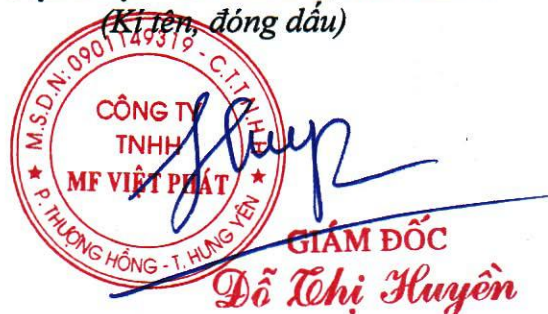 (Kí tên, đóng dấu)
M.S.D.N: 0901149319 - C.T.T.N.H.H
CÔNG TY
TNHH
MF VIỆT PHÁT
P. THƯỢNG HỒNG - T. HƯNG YÊN
GIÁM ĐỐC
Đỗ Thị Huyền